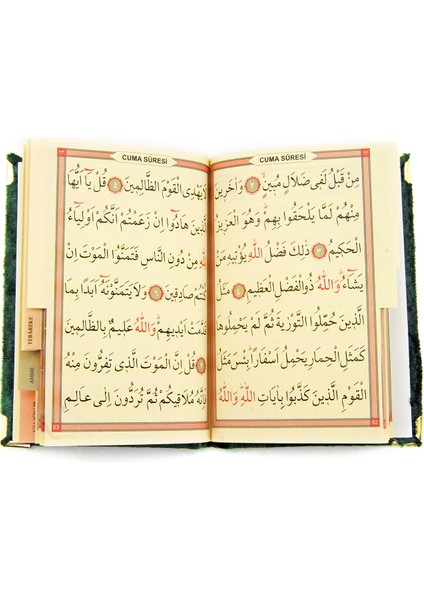 CUMA SÛRESİ
مِنْ قَبْلُ لَفِى ضَلَالٍ مُبِينٍ ﴿٢﴾ وَاٰخَرِينَ
مِنْهُمْ لَمَّا يَلْحَقُوا بِهِمْ وَهُوَ الْعَزِيزُ
الْحَكِيمُ ﴿٣﴾ ذٰلِكَ فَضْلُ اللّٰهِ يُؤْتِيهِ مَنْ
يَشَاءُ وَاللّٰهُ ذُوالْفَضْلِ الْعَظِيمِ ﴿٤﴾ مَثَلُ
الَّذِينَ حُمِّلُوا التَّوْرٰيةَ ثُمَّ لَمْ يَحْمِلُوهَا
كَمَثَلِ الْحِمَارِ يَحْمِلُ اَسْفَارًا بِئْسَ مَثَلُ
الْقَوْمِ الَّذِينَ كَذَّبُوا بِاٰيَاتِ اللّٰهِ وَاللّٰهُ
CUMA SÛRESİ
لَا يَهْدِى الْقَوْمَ الظَّالِمِينَ ﴿٥﴾ قُلْ يَا اَيُّهَا
الَّذِينَ هَادُوا اِنْ زَعَمْتُمْ اَنَّكُمْ اَوْلِيَاءُ
لِلّٰهِ مِنْ دُونِ النَّاسِ فَتَمَنَّوُا الْمَوْتَ اِنْ
كُنْتُمْ صَادِقِينَ ﴿٦﴾ وَلَا يَتَمَنَّوْنَهُ اَبَدًا بِمَا
قَدَّمَتْ اَيْدِيهِمْ وَاللّٰهُ عَلِيمٌ بِالظَّالِمِينَ
﴿٧﴾ قُلْ اِنَّ الْمَوْتَ الَّذِى تَفِرُّونَ مِنْهُ
فَاِنَّهُ مُلَاقِيكُمْ ثُمَّ تُرَدُّونَ اِلٰى عَالِمِ
TEBAREKE
AMME